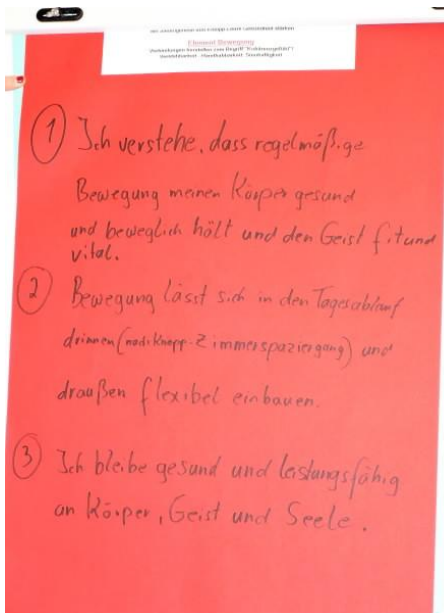 Element Bewegung
Verstehbarkeit - Handhabbarkeit - Sinnhaftigkeit
1 Ich verstehe, dass regelmäßige
Bewegung meinen Körper gesund
und beweglich hält und den Geist fit und
vital.
2 Bewegung lässt sich in den Tagesablauf
drinnen (nach Kneipp: Zimmerspaziergang) und
draußen flexibel einbauen.
3 Ich bleibe gesund und leistungsfähig
an Körper, Geist und Seele.